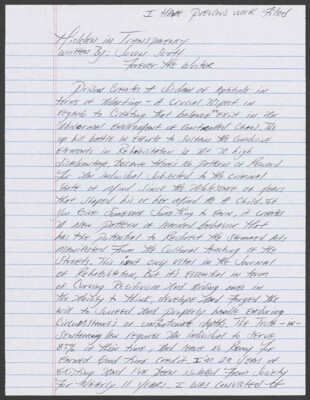 I HAVE PREVIOUS WORK Filed
Hidden in Transparency
Written By: John
Forever the Writer
Prison Creates A of Aptitude in
terms of Adapting - A Crucial Aspect in
regards to Creating that balance exist in the
Abnormal environment of Controlled Chaos. The
up hill battle in efforts to Sustain the
elements in Rehabilitation is at a high
disadvantage, because there's no pattern of Reward
for an individual subjected to the criminal
State of mind since the Adolescence or years
that shaped his or her mind As A Child. If
You Give Someone Something to earn, it creates
A New pattern or learned behavior that
has the potential to Reduce the Acts
from the Cultural teaching of the
Streets. This isn't only vital in the Journal
of Rehabilitation, But it's essential in term
of Curving Recidivism And Aiding ones in
the Ability to think, develope And forged the
will to Succeed And properly handle enduring
Circumstances or unfortunate The Truth-in-
Sentencing law requires An individual to serve
85% of their time, And leave no Room for
earned Good Time Credit. I'm 29 Years of
existing And I've been isolated from Society
for Nearly 11 years. I was Convicted of